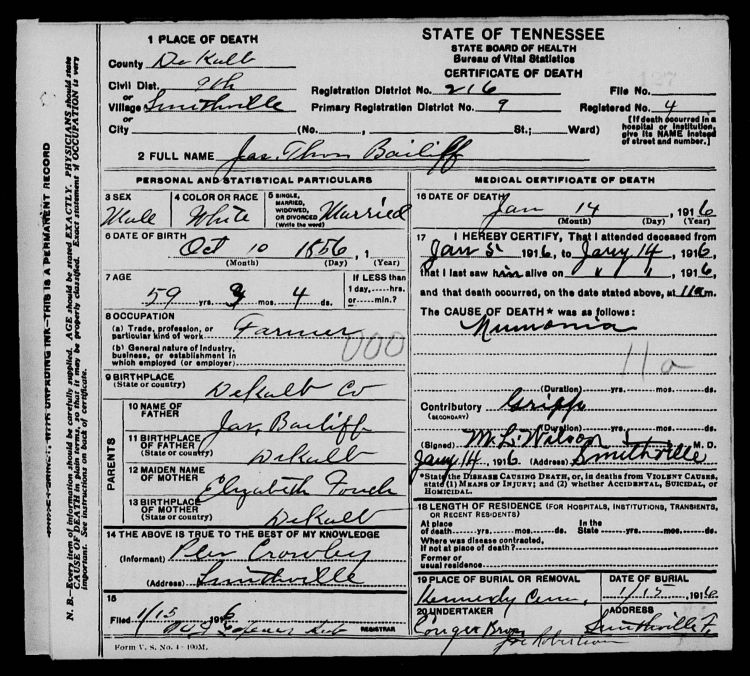 1 PLACE OF DEATH
County De Kalb
Civil Dist. 9th
or
Village Smithville
or
City (No. , St.; Ward)
STATE OF TENNESSEE
STATE BOARD OF HEALTH
Bureau of Vital Statistics
CERTIFICATE OF DEATH
Registration District No. 216 File No. 137
Primary Registration District No. 9 Registered No. 4
[If death occurred in a
hospital or institution,
give its NAME instead
of street and number.]
2 FULL NAME Jas. Thos Bailiff
PERSONAL AND STATISTICAL PARTICULARS
3 SEX
Male
4 COLOR OR RACE
White
5 SINGLE,
MARRIED,
WIDOWED,
OR DIVORCED
(Write the word)
Married
6 DATE OF BIRTH
Oct 10 1856, 1
(Month) (Day) (Year)
7 AGE
59 yrs. 3 mos. 4 ds.
If LESS than
1 day,.....hrs.
or.....min.?
8 OCCUPATION
(a) Trade, profession, or
particular kind of work Farmer
(b) General nature of industry,
business, or establishment in
which employed (or employer)
000
9 BIRTHPLACE
(State or country) DeKalb Co
PARENTS
10 NAME OF
FATHER Jas. Bailiff
11 BIRTHPLACE
OF FATHER
(State or country) DeKalb
12 MAIDEN NAME
OF MOTHER Elizabeth Fouch
13 BIRTHPLACE
OF MOTHER
(State or country) DeKalb
14 THE ABOVE IS TRUE TO THE BEST OF MY KNOWLEDGE
(Informant) Crowley
(Address) Smithville
15
Filed 1/15 1916
REGISTRAR
Form V. S. No. 4—100M.
MEDICAL CERTIFICATE OF DEATH
16 DATE OF DEATH
Jan 14, 1916
(Month) (Day) (Year)
17 I HEREBY CERTIFY, That I attended deceased from
Jan 5 1916, to Jany 14 1916,
that I last saw him alive on " " , 1916,
and that death occurred, on the date stated above, at 11 a m.
The CAUSE OF DEATH * was as follows:
Numonia
11a
(Duration) yrs. mos. ds.
Contributory Gripp
(SECONDARY)
(Duration) yrs. mos. ds.
(Signed) M. L. Wilson M. D.
Jany 14, 1916 (Address) Smithville
*State the DISEASE CAUSING DEATH, or, in deaths from VIOLENT CAUSES,
state (1) MEANS OF INJURY; and (2) whether ACCIDENTAL, SUICIDAL, or
HOMICIDAL.
18 LENGTH OF RESIDENCE (FOR HOSPITALS, INSTITUTIONS, TRANSIENTS,
OR RECENT RESIDENTS)
At place
of death yrs. mos. ds.
In the
State yrs. mos. ds.
Where was disease contracted,
If not at place of death?
Former or
usual residence
19 PLACE OF BURIAL OR REMOVAL
Kennedy Cem.
DATE OF BURIAL
1/15, 1916
20 UNDERTAKER
Conger Bros
ADDRESS
Smithville
Joe Robertson
WRITE PLAINLY, WITH UNFADING INK—THIS IS A PERMANENT RECORD
N. B.—Every item of information should be carefully supplied. AGE should be stated EXACTLY. PHYSICIANS should state
CAUSE OF DEATH in plain terms, so that it may be properly classified. Exact statement of OCCUPATION is very
important. See instructions on back of certificate.